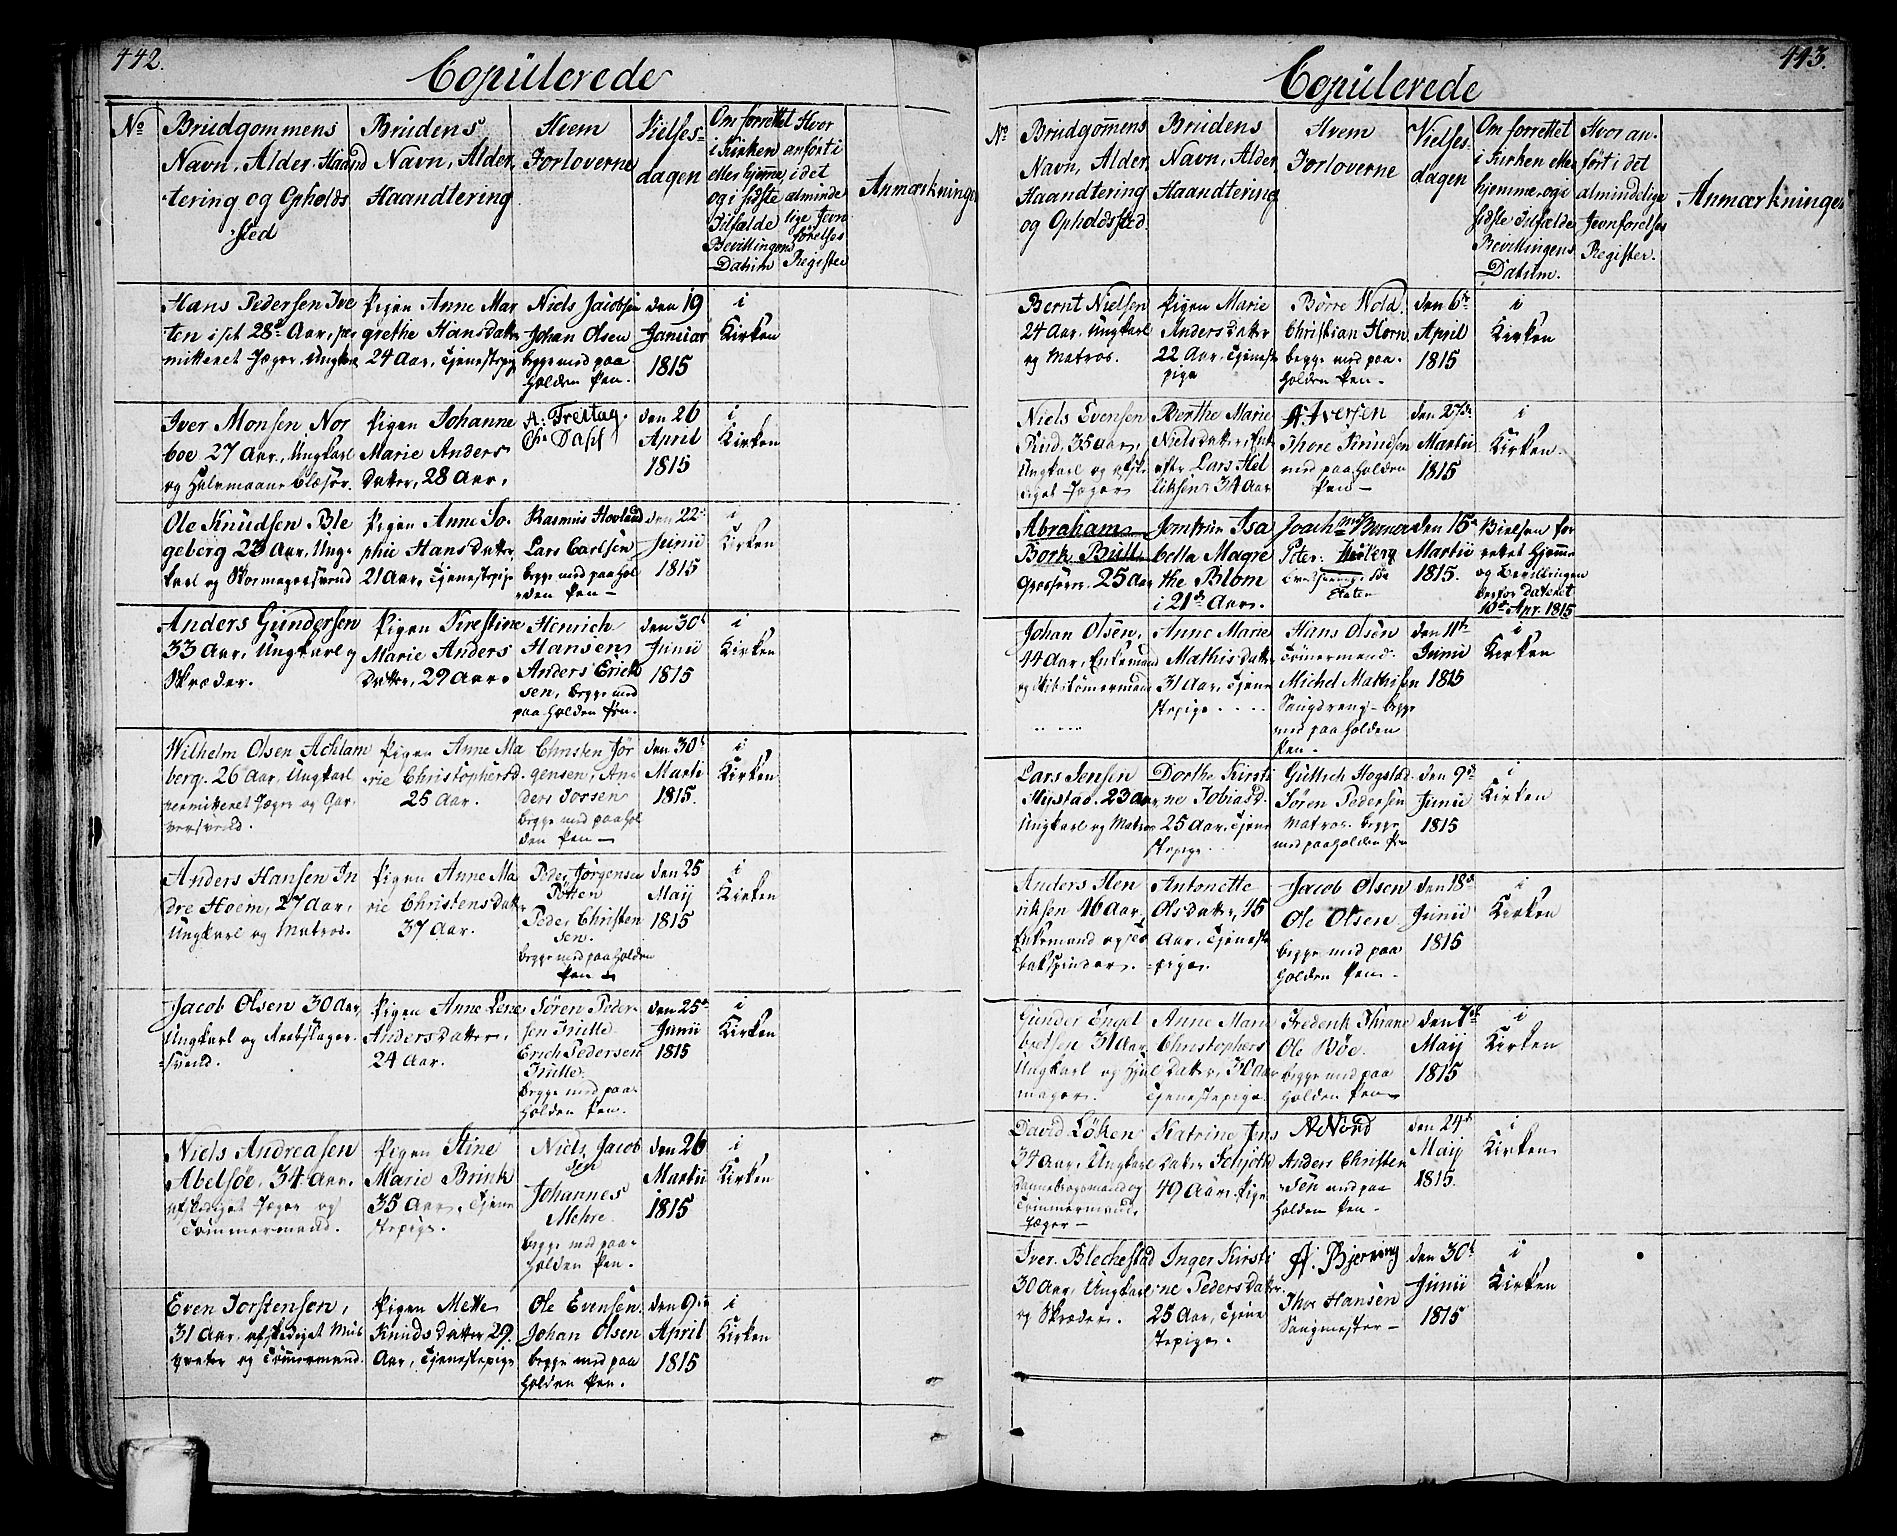 442.
Copulerede
No
Brudgommens
Navn, Alder, Haand
tering og Opholds
sted
Brudens
Navn, Alder,
Haandtering
Hvem
Forloverne
Vielses-
dagen
Om forrettet
i Kirken
eller hjemme
og i sidste
Tilfælde
Bevillingens
Datum
Hvor
anført i
det
alminde
lige Jevn
førelses
Register
Anmærkninger
Hans Pedersen Tve
ten i sit 28d Aar, per
mitteret Jæger, Ungkarl
Pigen Anne Mar
grethe Hansdatter
24 Aar, Tjenestepige
Niels Jacobsen
Johan Olsen
begge med paa
holden Pen.
den 19
Januar
1815
i
Kirken
Iver Monsen Nor
boe 27 Aar, Ungkarl
og Halvmaane Blæser.
Pigen Johanne
Marie Anders
Datter, 28 Aar,
A: Freitag.
Chr Dahl
den 26
April
1815
i
Kirken
Ole Knudsen Ble
geberg 23 Aar, Ung-
karl og Skomagersvend
Pigen Anne So-
phie Hansdatter
21 Aar, Tjenestepige
Rasmus Hovland
Lars Carlsen
begge med paahol
den Pen —
den 22
Junii
1815
i
Kirken
Anders Gundersen
33 Aar, Ungkarl og
Skræder.
Pigen Kirestine
Marie Anders
Datter, 29 Aar.
Henrich
Hansen
Anders Erick
sen, begge med
paaholden Pen.
den 30t
Junii
1815
i
Kirken
Wilhelm Olsen Achlam
berg. 26 Aar, Ungkarl
permitteret Jæger og Gar
versvend.
Pigen Anne Ma
rie Christophersd.
25 Aar.
Christen Jør
gensen, An
ders
begge med paahol
den Pen —
den 30t
Marti
1815.
i
Kirken
Anders Hansen In
dre Hoem, 27 Aar,
Ungkarl og Matros.
Pigen Anne Ma
rie Christensdatter
37 Aar.
Peder Jørgensen
Potten
Peder Christen
sen.
begge med paaholden
Pen —
den 25
Maij
1815
i
Kirken
Jacob Olsen 30 Aar,
Ungkarl og Reebslager-
svend.
Pigen Anne Lene
Andersdatter,
24 Aar.
Søren Peder-
sen Trulle
Erich Pedersen
Trulle.
begge med paa-
holden Pen.
den 25d
Junii
1815
i
Kirken
Niels Andreasen
Abelsøe, 34 Aar,
afskediget Jæger og
Tømmermand.
Pigen Stine
Marie Brink
35 Aar, Tjene
stepige.
Niels Jacob
sen
Johannes
Mehre.
begge med paa-
holden Pen.
den 26
Martii
1815
i
Kirken
Even Torstensen,
31 Aar, afskediget Mus
queteer og Tømmermand.
Pigen Mette
Knuds datter 29.
Aar, Tjenestepige
Ole Evensen
Johan Olsen
begge med paa
holden Pen.
den 9de
April
1815
i
Kirken
443.
Copulerede
No
Brudgommens
Navn, Alder
Haandtering
og Opholdssted.
Brudens
Navn, Alder,
Haandtering
Hvem
Forloverne
Vielses-
dagen
Om forrettet
i Kirken eller
hjemme, og i
sidste Tilfælde
Bevillingens
Datum.
Hvor an-
ført i det
almindelige
Jevnførelses
Register.
Anmærkninger
Bernt Nielsen
24 Aar, Ungkarl
og Matros.
Pigen Marie
Andersdatter
22 Aar, Tjeneste
pige
Børre Wold.
Christian Horn
begge med paa-
holden Pen —
den 6te
April
1815
i
Kirken
Niels Evensen
Rud, 35 Aar,
Ungkarl og afske
diget Jæger
Berthe Marie
Nielsdatter, Enke
efter Lars Hel
liksen, 34 Aar
A. Iversen
Thore Knudsen
med paaholden
Pen —
den 27de
Martii
1815
i
Kirken.
Abraham
Bork Bull
Grosserer. 25 Aar
Jomfrue Isa
bella Magre
the Blom
i 21de Aar.
Joach
Peter
den 15de
Martii
1815.
Vielsen for
rettet Hjemme
og Bevillingen
derfor dateret
10de Apr. 1815
Johan Olsen,
44 Aar, Enkemand
og Skibstømermand
Anne Marie
Mathisdatter
31 Aar, Tjene
stepige.
Hans Olsen
Tømermand.
Michel Mathisen
Saugdreng — begge
med paaholden
Pen —
den 11te
Junii
1815
i
Kirken
Lars Jensen
Mystad. 23 Aar
Ungkarl og Matros
Dorthe Kirsti
ne Tobiasd.
25 Aar, Tjene
stepige.
Guttich Hogstad
Søren Pedersen
Matros. begge
med paaholden Pen
den 9de
Junii
1815
i
Kirken
Anders Hen
riksen 46 Aar
Enkemand og To
bakspinder.
Antonette
Olsdatter, 45
Aar, Tjeneste
-pige.
Jacob Olsen
Ole Olsen
begge med paa
holden Pen —
den 18d
Junii
1815
i
Kirken
Gunder Engel
bretsen 31 Aar
Ungkarl og Hjul
mager.
Anne Marie
Christophers
Datter, 30 Aar
Tjenestepige.
Frederik Thrane
Ole Bøe.
begge med paa
holden Pen —
den 7de
Maij
1815
i
Kirken
David Löken
34 Aar, Ungkarl
Dannebrogsmand og
Tømmermand,
Jæger —
Katrine Jens
Datter Schjøth
49 Aar, Pige
Anders Christen
sen med paa
holden Pen —
den 24d
Maij
1815
i
Kirken
Iver Blechestad
30 Aar, Ungkarl
og Skræder.
Inger Kirsti
ne Pedersdatter
25 Aar, Tjene
stepige.
A. Bjerring
Thor Hansen
Saugmester —
den 30t
Junii
1815
i
Kirken